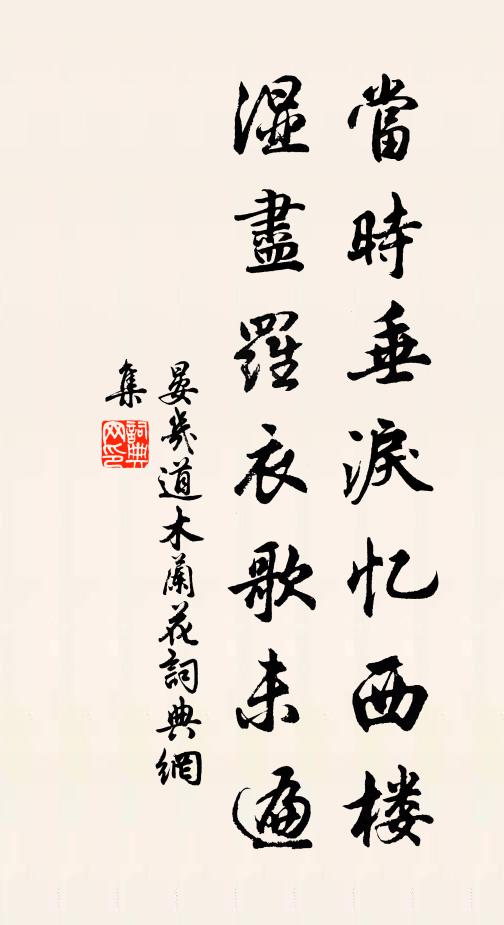 當時垂淚忆西楼
湿盡羅衣歌未遍
晏幾道木蘭花詞典網
集
詞典网印